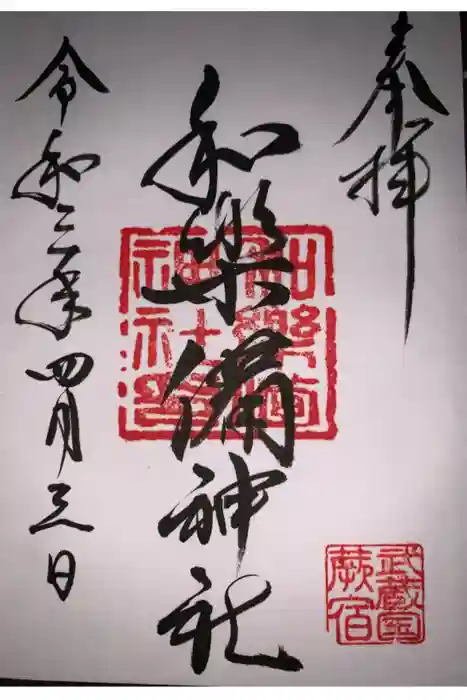 奉拝
和樂備神社
令和三年四月三日
武蔵国
蕨宿